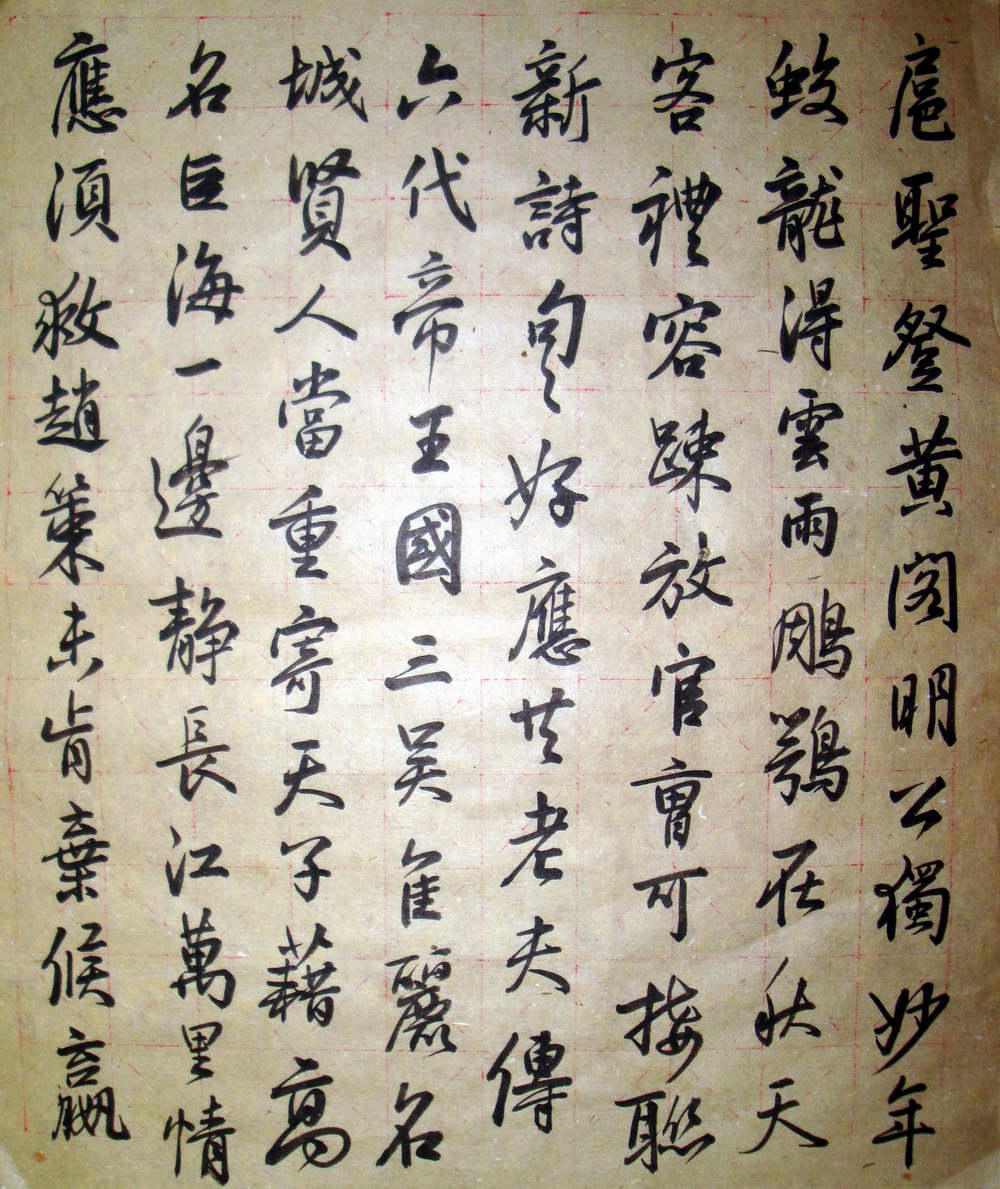 扈聖登黄閣明公獨妙年
蛟龍得雲雨鵰鶚在秋天
客禮容踈放官曹可接聯
新詩句々好應共老夫傳
六代帝王國三吴隹麗名
城賢人當重寄天子藉高
名巨海一邊静長江萬里情
應須救趙策未肯棄候嬴